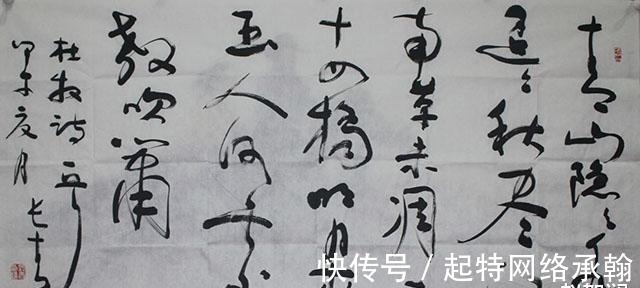 青山隐々
迢々秋尽
南草未凋
十四橋明月
玉人何处
教吹簫
杜牧诗一首
甲午夏月
快传号 / 起特网络承翰